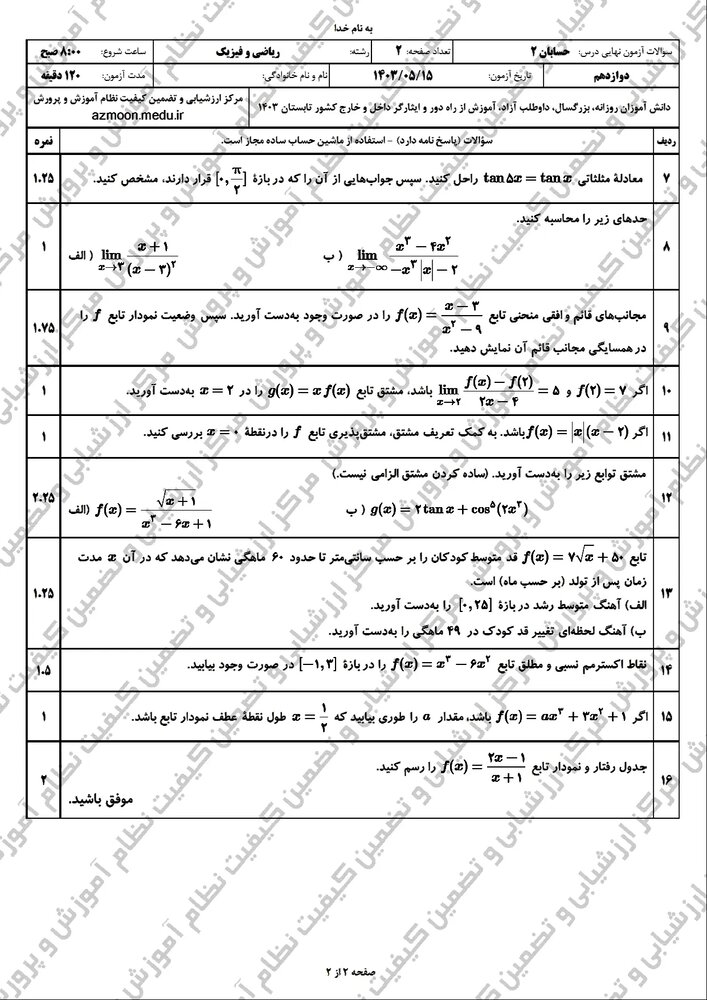 به نام خدا
سؤالات آزمون نهایی درس: حسابان ۲
تعداد صفحه: ۲
رشته: ریاضی و فیزیک
ساعت شروع: ۸:۰۰ صبح
دوازدهم
تاریخ آزمون: ۱۴۰۳/۰۵/۱۵
نام و نام خانوادگی:
مدت آزمون: ۱۲۰ دقیقه
دانش آموزان روزانه، بزرگسال، داوطلب آزاد، آموزش از راه دور و ایثارگر داخل و خارج کشور تابستان ۱۴۰۳
مرکز ارزشیابی و تضمین کیفیت نظام آموزش و پرورش
azmoon.medu.ir
ردیف
سؤالات (پاسخ نامه دارد) - استفاده از ماشین حساب ساده مجاز است.
نمره
۷
معادلهٔ مثلثاتی tan ۵x = tan x را حل کنید. سپس جواب‌هایی از آن را که در بازهٔ [۰, π/۲] قرار دارند، مشخص کنید.
۱.۲۵
۸
حدهای زیر را محاسبه کنید.
الف) lim x→۳ (x + ۱)/(x − ۳)^۲
ب) lim x→−∞ (x^۳ − ۴x^۲)/(−x^۳|x| − ۲)
۱
۹
مجانب‌های قائم و افقی منحنی تابع f(x) = (x − ۳)/(x^۲ − ۹) را در صورت وجود به‌دست آورید. سپس وضعیت نمودار تابع f را
در همسایگی مجانب قائم آن نمایش دهید.
۱.۷۵
۱۰
اگر f(۲) = ۷ و lim x→۲ (f(x) − f(۲))/(۲x − ۴) = ۵ باشد، مشتق تابع g(x) = x f(x) را در x = ۲ به‌دست آورید.
۱
۱۱
اگر f(x) = |x|(x − ۲) باشد. به کمک تعریف مشتق، مشتق‌پذیری تابع f را درنقطهٔ x = ۰ بررسی کنید.
۱
۱۲
مشتق توابع زیر را به‌دست آورید. (ساده کردن مشتق الزامی نیست.)
الف) f(x) = √(x + ۱)/(x^۳ − ۶x + ۱)
ب) g(x) = ۲ tan x + cos^۵(۲x^۳)
۲.۲۵
۱۳
تابع f(x) = ۷√x + ۵۰ قد متوسط کودکان را بر حسب سانتی‌متر تا حدود ۶۰ ماهگی نشان می‌دهد که در آن x مدت
زمان پس از تولد (بر حسب ماه) است.
الف) آهنگ متوسط رشد در بازهٔ [۰, ۲۵] را به‌دست آورید.
ب) آهنگ لحظه‌ای تغییر قد کودک در ۴۹ ماهگی را به‌دست آورید.
۱.۲۵
۱۴
نقاط اکسترمم نسبی و مطلق تابع f(x) = x^۳ − ۶x^۲ را در بازهٔ [−۱, ۳] در صورت وجود بیابید.
۱.۵
۱۵
اگر f(x) = ax^۳ + ۳x^۲ + ۱ باشد، مقدار a را طوری بیابید که x = ۱/۲ طول نقطهٔ عطف نمودار تابع باشد.
۱
۱۶
جدول رفتار و نمودار تابع f(x) = (۲x − ۱)/(x + ۱) را رسم کنید.
موفق باشید.
۲
صفحه ۲ از ۲
مرکز ارزشیابی و تضمین کیفیت نظام آموزش و پرورش